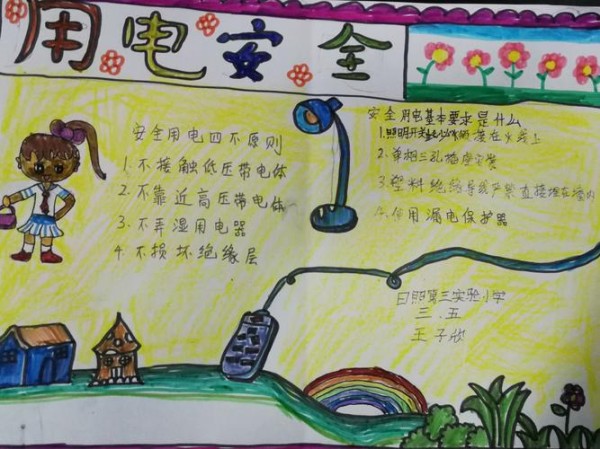 用电安全
安全用电四不原则
1.不接触低压带电体
2.不靠近高压带电体
3.不弄湿用电器
4.不损坏绝缘层
安全用电基本要求是什么
1.照明开关必须接在火线上
2.单相三孔插座安装
3.塑料绝缘导线严禁直接埋在墙内
4.使用漏电保护器
日照第三实验小学
三.五
王子欣